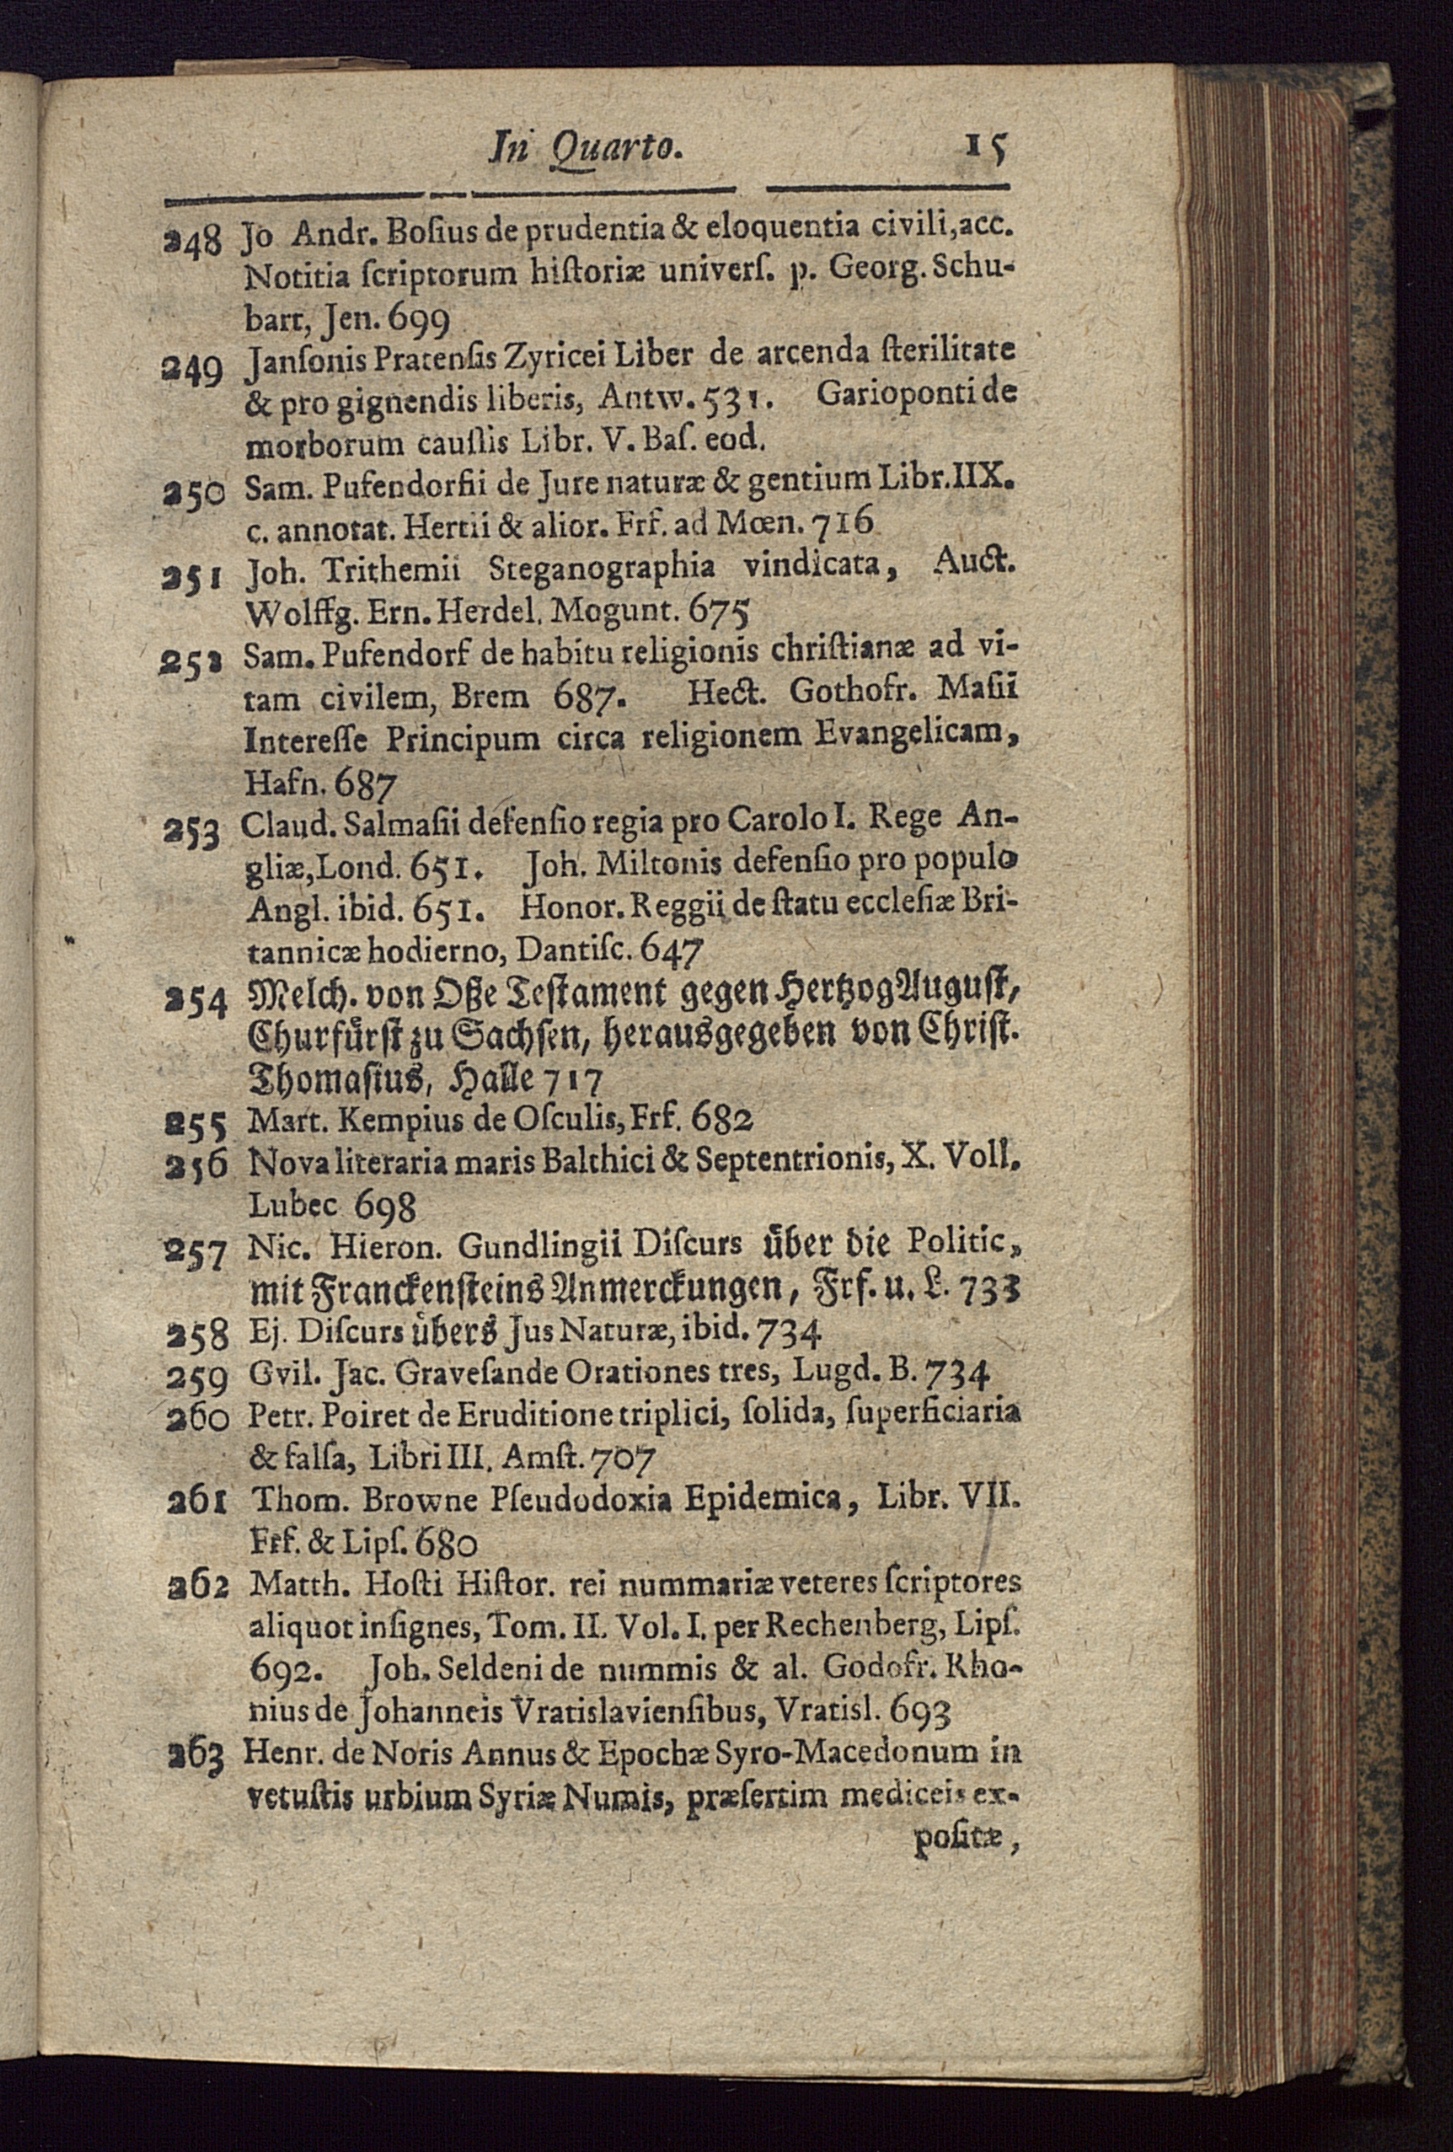 In Quarto. 15
248 Jo Andr. Boſius de prudentia & eloquentia civili, acc.
Notitia ſcriptorum hiſtoriæ univerſ. p. Georg. Schu-
bart, Jen. 699
249 Janſonis Pratenſis Zyricei Liber de arcenda ſterilitate
& pro gignendis liberis, Antw. 531. Garioponti de
morborum cauſſis Libr. V. Baſ. eod.
250 Sam. Pufendorfii de Jure naturæ & gentium Libr. IIX.
c. annotat. Hertii & alior. Frf. ad Mœn. 716
251 Joh. Trithemii Steganographia vindicata, Auct.
Wolffg. Ern. Herdel. Mogunt. 675
252 Sam. Pufendorf de habitu religionis chriſtianæ ad vi-
tam civilem, Brem 687. Hect. Gothofr. Maſii
Intereſſe Principum circa religionem Evangelicam,
Hafn. 687
253 Claud. Salmaſii defenſio regia pro Carolo I. Rege An-
gliæ, Lond. 651. Joh. Miltonis defenſio pro populo
Angl. ibid. 651. Honor. Reggii de ſtatu eccleſiæ Bri-
tannicæ hodierno, Dantiſc. 647
254 Melch. von Oße Teſtament gegen Hertzog Auguſt,
Churfürſt zu Sachſen, herausgegeben von Chriſt.
Thomaſius, Halle 717
255 Mart. Kempius de Oſculis, Frf. 682
256 Nova literaria maris Balthici & Septentrionis, X. Voll.
Lubec 698
257 Nic. Hieron. Gundlingii Diſcurs über die Politic,
mit Franckenſteins Anmerckungen, Frf. u. L. 733
258 Ej. Diſcurs übers Jus Naturæ, ibid. 734
259 Gvil. Jac. Graveſande Orationes tres, Lugd. B. 734
260 Petr. Poiret de Eruditione triplici, ſolida, ſuperficiaria
& falſa, Libri III. Amſt. 707
261 Thom. Browne Pſeudodoxia Epidemica, Libr. VII.
Frf. & Lipſ. 680
262 Matth. Hoſti Hiſtor. rei nummariæ veteres ſcriptores
aliquot inſignes, Tom. II. Vol. I. per Rechenberg, Lipſ.
692. Joh. Seldeni de nummis & al. Godofr. Rho-
nius de Johanneis Vratislavienſibus, Vratisl. 693
263 Henr. de Noris Annus & Epochæ Syro-Macedonum in
vetuſtis urbium Syriæ Numis, præſertim mediceis ex-
poſitæ,